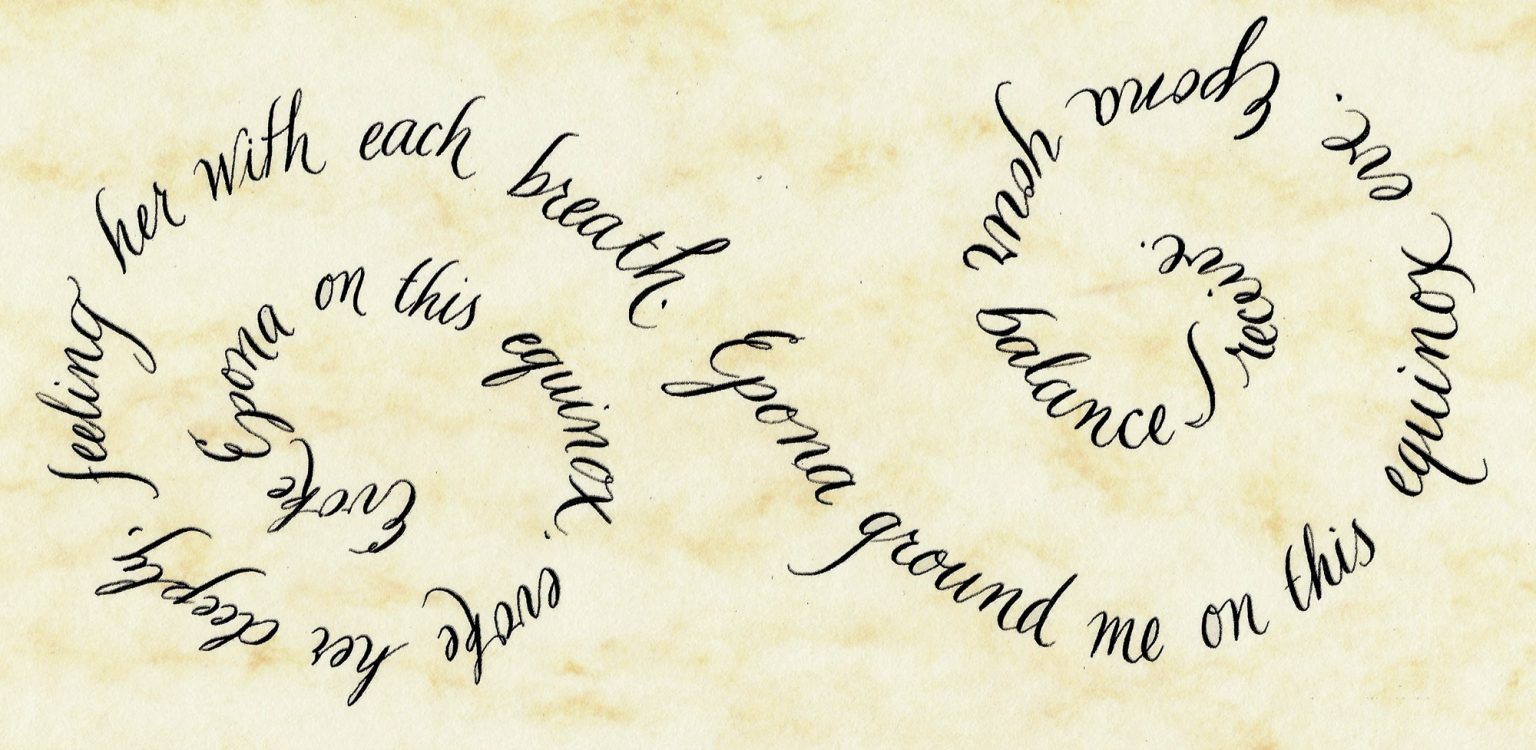 Evoke Epona on this equinox, evoke her deeply, feeling her with each breath. Epona ground me on this equinox eve. Epona your balance I receive.